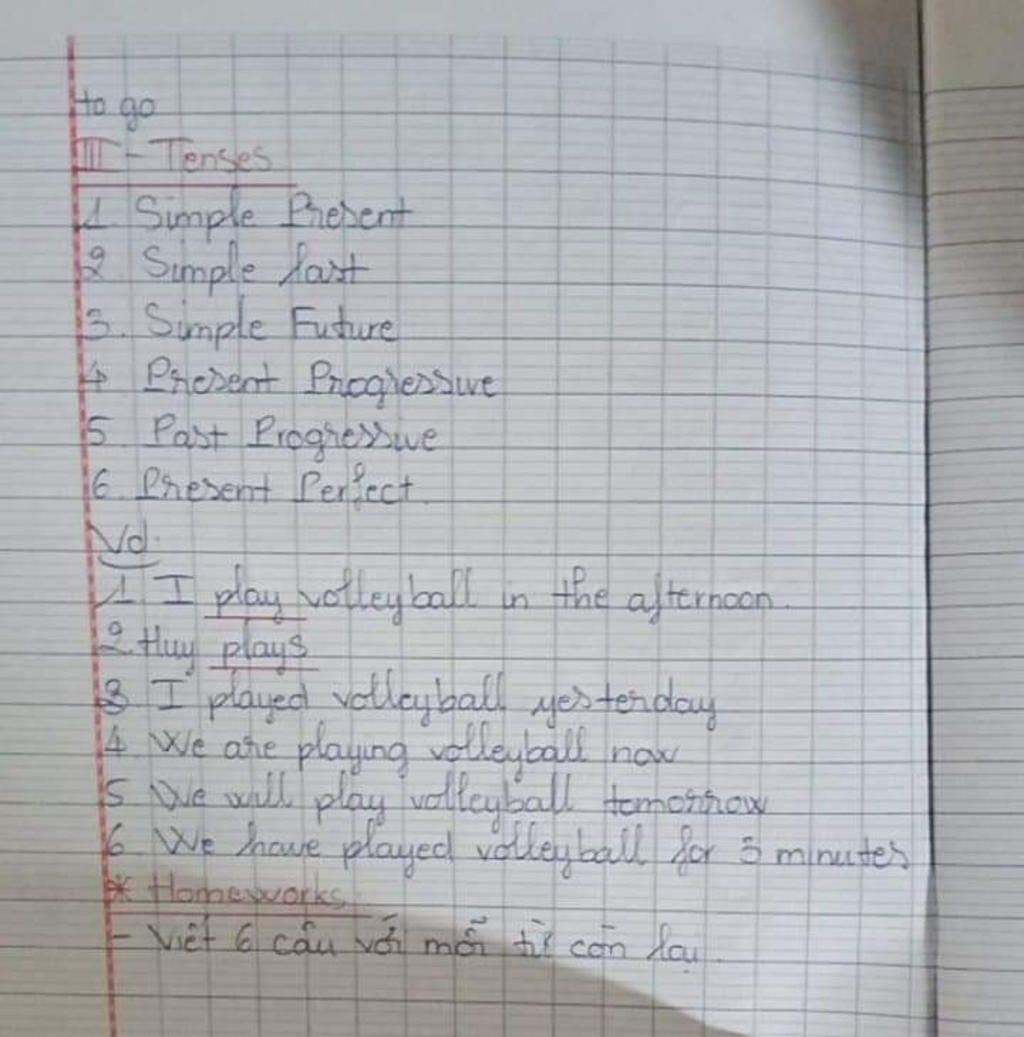 to go
III - Tenses
1. Simple Present
2 Simple Past
3. Simple Future
4 Present Progressive
5. Past Progressive
6. Present Perfect.
Vd:
1. I play volleyball in the afternoon.
2. Huy plays
3 I played volleyball yesterday
4. We are playing volleyball now
5 We will play volleyball tomorrow
6. We have played volleyball for 3 minutes
* Homeworks
- Viết 6 câu với mỗi từ còn lại.